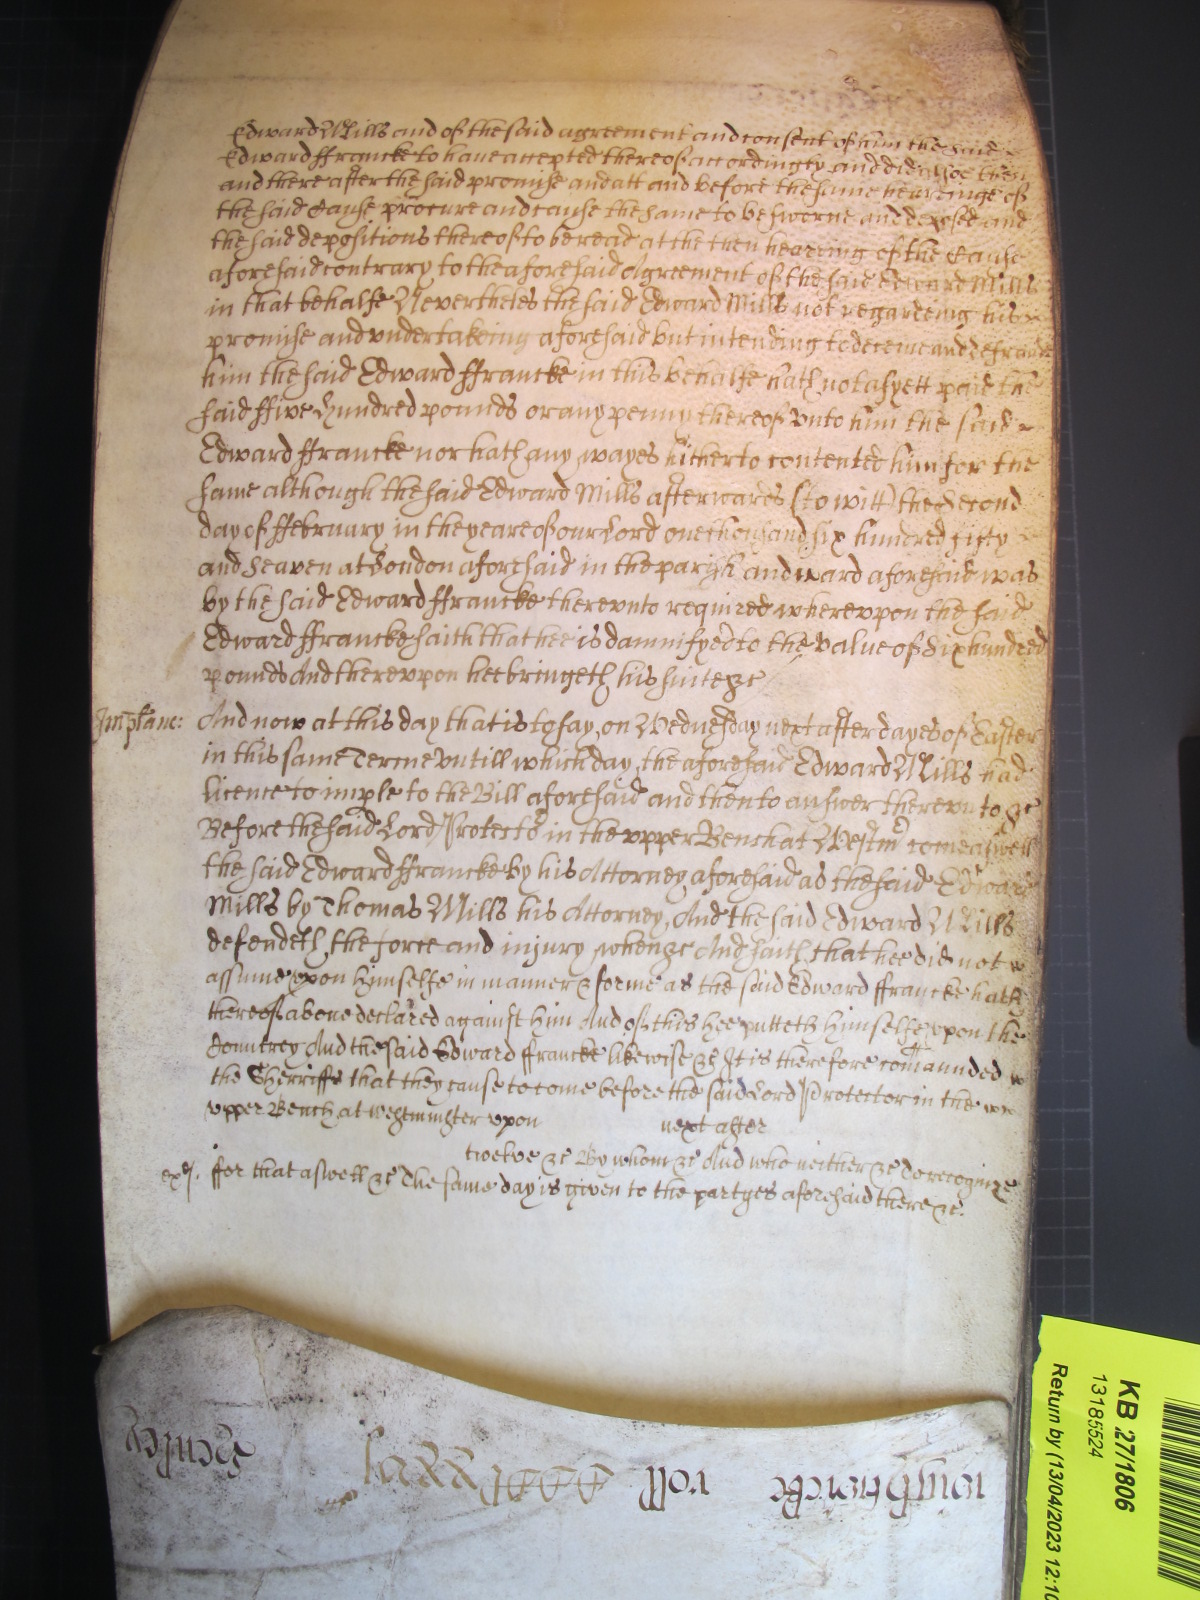 Edward Mills and of the said agreement and consent of him the said
Edward ffrancke to have accepted thereof accordingly and did alsoe then
and there after the said promise and att and before the same hearinge of
the said Cause procure and cause the same to be sworne and deposed and
the said depositions thereof to be read at the then hearing of the Cause
aforesaid contrary to the aforesaid Agreement of the said Edward Mills
in that behalfe NeverthelES the said Edward Mills not regardeing his
promise and undertakeing aforesaid but intending to deceive and defraude
him the said Edward ffrancke in this behalfe hath not as yett paid the
said ffive hundred pounds or any penny thereof vnto him the said
Edward ffrancke nor hath any wayes hitherto contented him for the
same although the said Edward Mills afterwards (to witt) the second
day of ffebruary in the yeare of our Lord one thousand six hundred fifty
and seaven at London aforesaid in the parish and ward aforesaid was
by the said Edward ffrancke therevnto required wherevpon the said
Edward ffrancke saith that hee is damnifyed to the value of six hundred
pounds And therevpon hee bringeth his suite &c
Imparlanc: And now at this day that is to say, on Wednesday next after dayes of Easter
in this same Terme vntill which day the aforesaid Edward Mills had
licence to imple to the Bill aforesaid and then to answer therevnto &c
Before the said Lord Protector in the vpper Bench at Westmr come aswell
the said Edward ffrancke by his Attorney aforesaid as the said Edward
Mills by Thomas Mills his Attorney, And the said Edward Mills
defendeth the force and injury when &c And saith that hee did not
assume vpon himselfe in manner & forme as the said Edward ffrancke hath
thereof above declared against him And of this hee putteth himselfe vpon the
Countrey And the said Edward ffrancke likewise &c It is therefore comaunded
the Sherriffs that they cause to come before the said Lord Protector in the
vpper Bench at Westminster vpon next after
twelve &c By whom &c And who neither &c To recognize
for that aswell &c The same day is given to the partyes aforesaid there &c.
roll
KB 271/806
13185524
Return by (13/04/2023 12:10